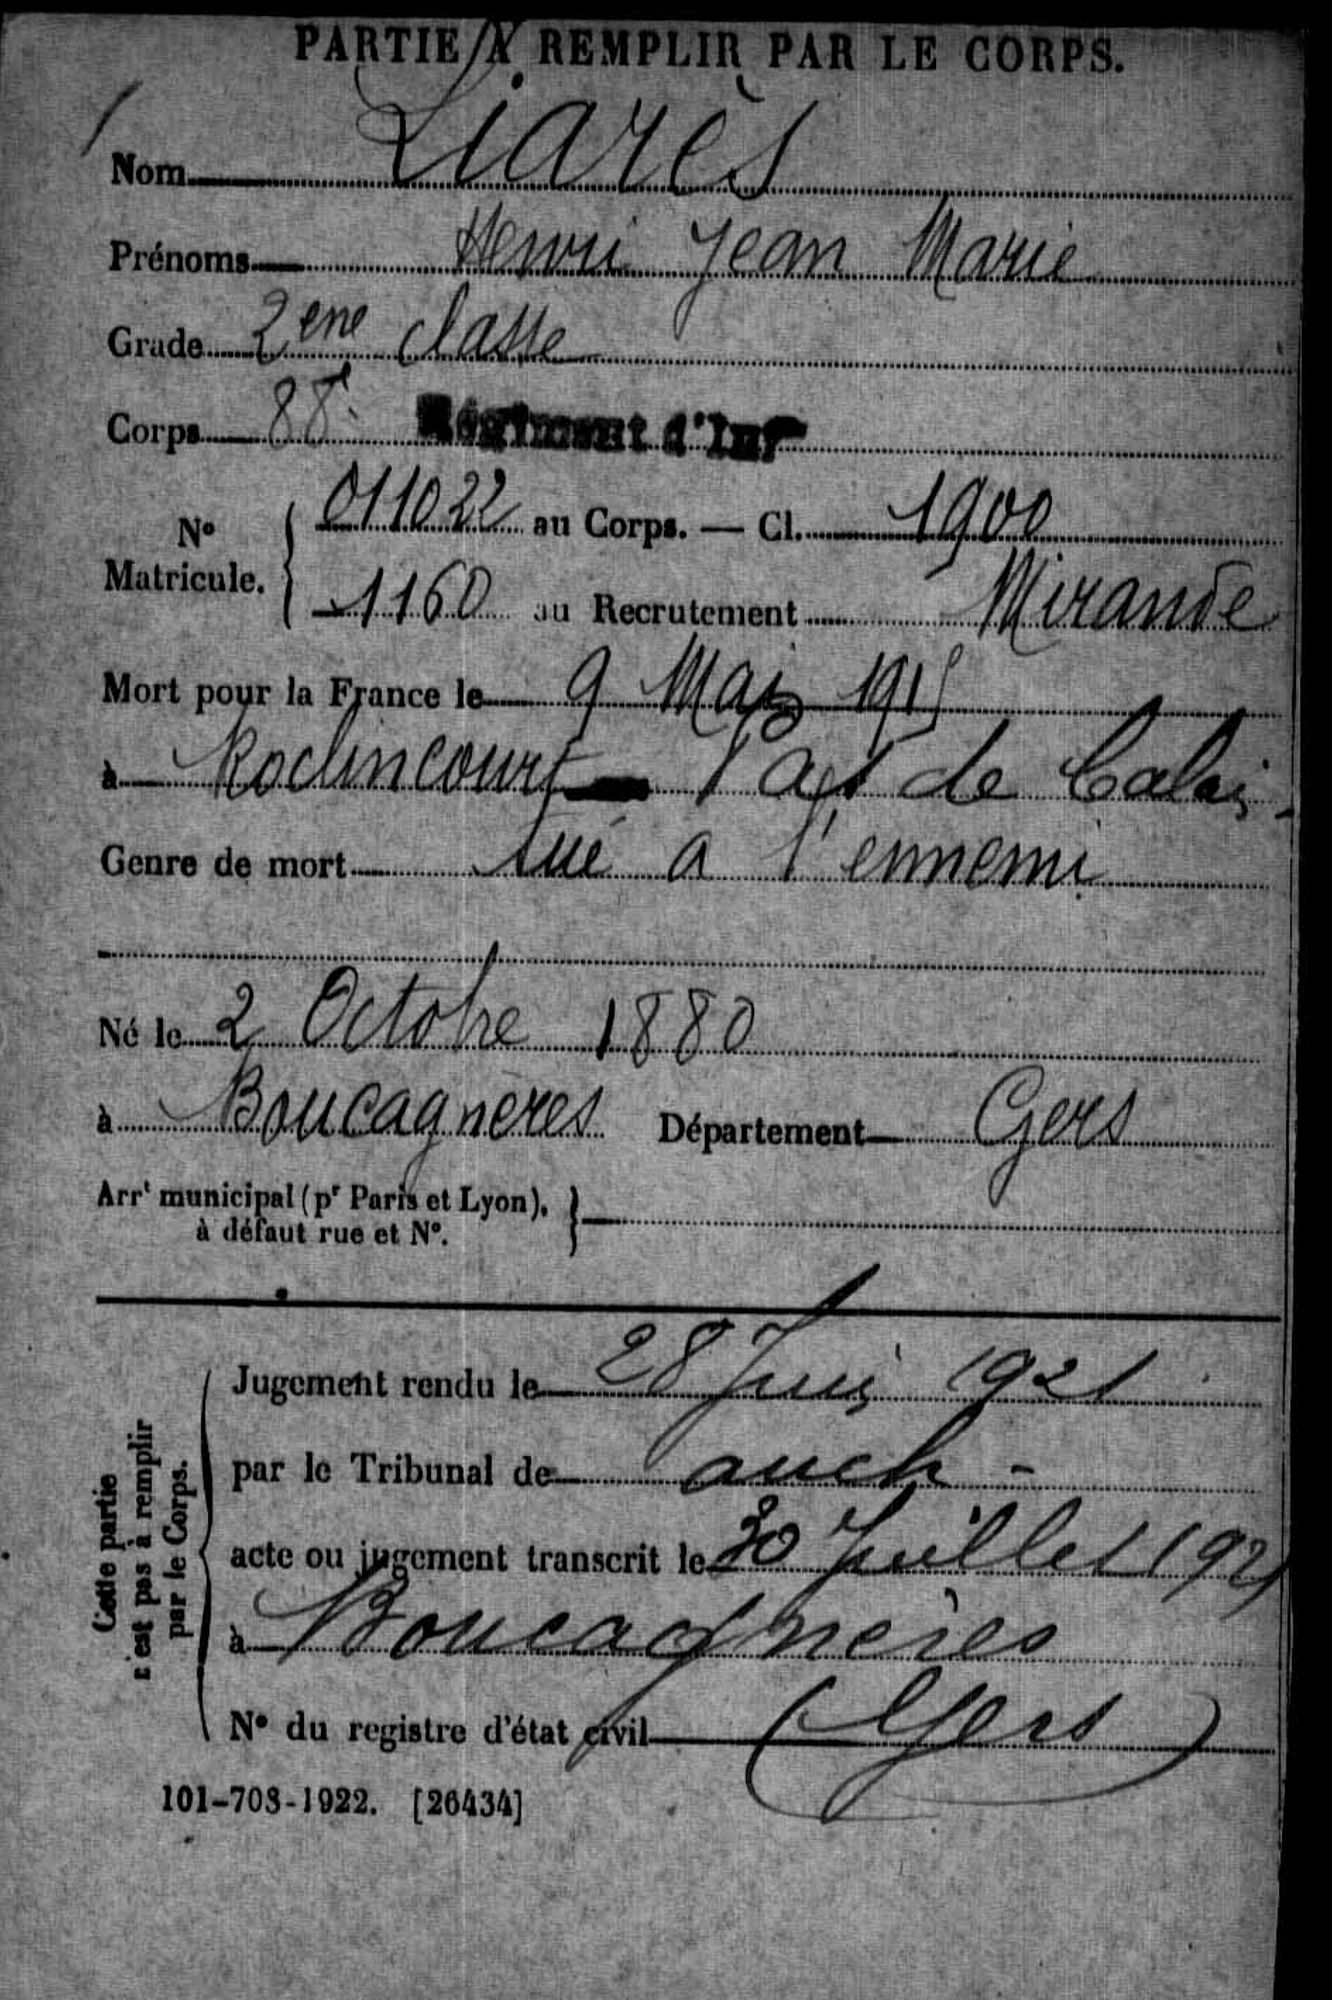 PARTIE À REMPLIR PAR LE CORPS.
Nom Liarès
Prénoms Henri Jean Marie
Grade 2ene classe
Corps 88e Régiment d'Inf
N° Matricule. 011022 au Corps. — Cl. 1900
1160 au Recrutement Mirande
Mort pour la France le 9 Mai 1915
à Roclincourt - Pas de Calais -
Genre de mort tué a l'ennemi
Né le 2 Octobre 1880
à Boucagnères Département Gers
Arrt municipal (pr Paris et Lyon),
à défaut rue et N°.
Jugement rendu le 28 Juin 1921
par le Tribunal de auch -
acte ou jugement transcrit le 30 Juillet 1921
à Boucagnères
N° du registre d'état civil (Gers)
Cette partie
n'est pas à remplir
par le Corps.
101-708-1922. [26434]